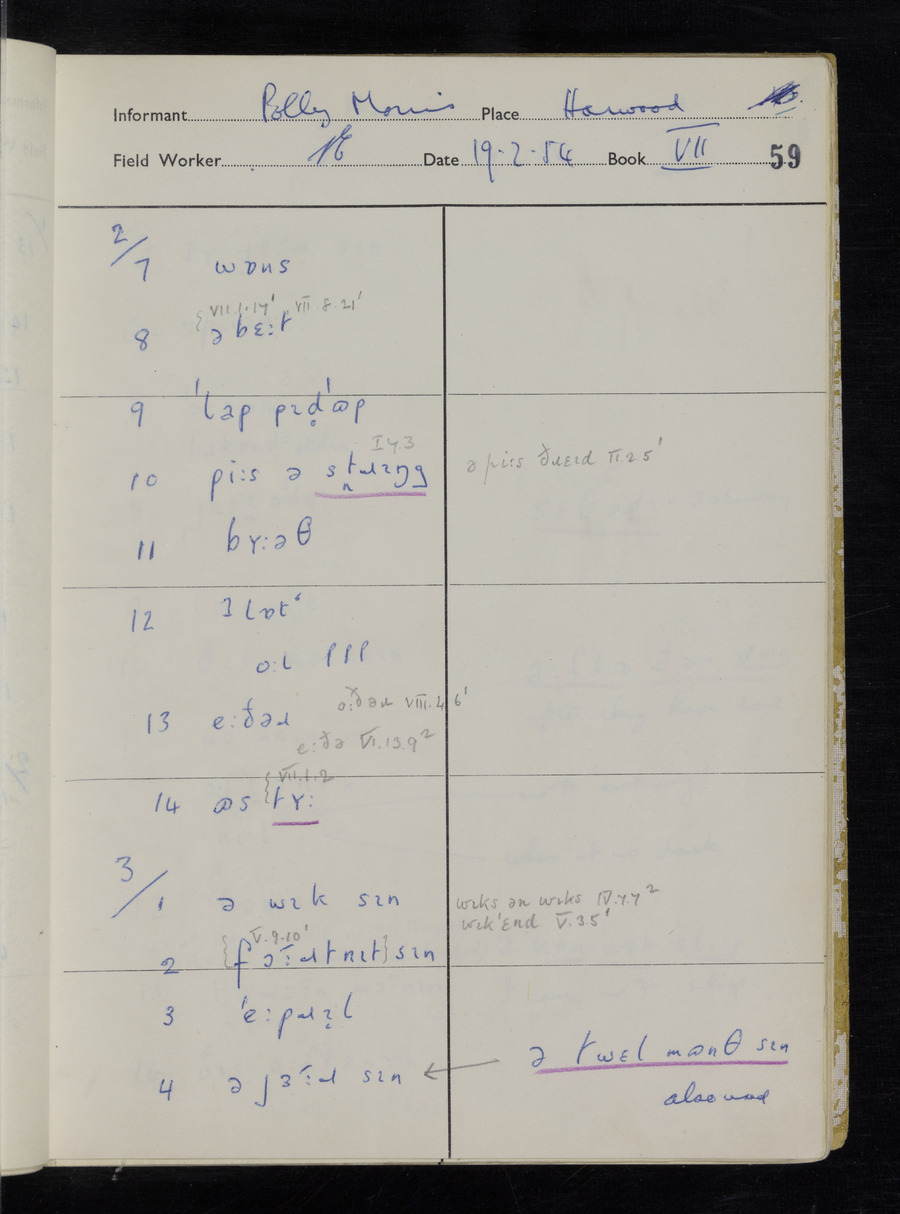 Informant Polly Morris Place Harwood
Field Worker Date 19·2·54 Book VII 59
2/
7 wɒns
{VII.1.14' VII.8.21'
8 ə bɛ:t
9 'lap pɪd̥'ɷp
I.7.3
10 pi:s ə st̪ɹɪŋg ə pi:s θɹɛɪd II.2.5'
11 bɤ:əθ
12 ɪ lɒt'
o:l
13 e:ðəɹ o:ðəɹ VIII.4.6'
e:ðə VI.13.9²
{VII.1.2
14 ɷs tɤ:
3/
1 ə wɪk sɪn wɪks ən wɪks IV.7.7²
wɪk'ɛnd V.3.5'
V.9.10'
2 {fə:ɹtnɪt} sɪn
3 'e:pɹɪl
4 ə jɜ:ɹ sɪn ← ə twɛl mɷnθ sɪn
also used